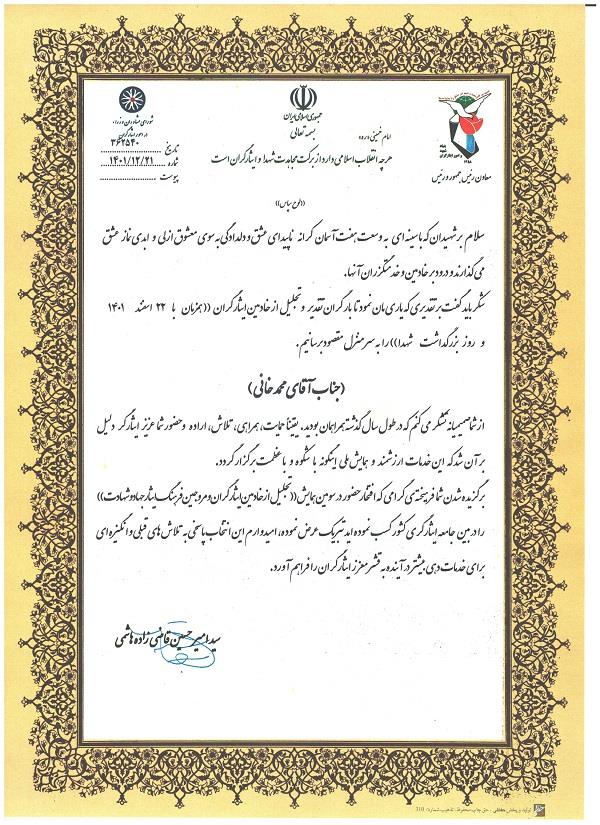 جمهوری اسلامی ایران
بسمه تعالی
امام خمینی (ره):
هر چه انقلاب اسلامی دارد از برکت مجاهدت شهدا و ایثارگران است
معاون رئیس جمهور و رئیس
تاریخ ۳۶۲۵۴۰
شماره ۱۴۰۱/۱۲/۲۱
پیوست
((لوح سپاس))
سلام بر شهیدان که با سینه ای به وسعت هفت آسمان کرانه ناپیدای عشق و دلدادگی به سوی معشوق ازلی و ابدی نماز عشق
می گذارند و درود بر خادمین و خدمتگزران آنها.
شکر باید گفت بر تقدیری که یاری مان نمود تا بار گران تقدیر و تجلیل از خادمین ایثارگران ((همزمان با ۲۲ اسفند ۱۴۰۱
و روز بزرگداشت شهدا)) را به سر منزل مقصود برسانیم.
(جناب آقای محمد خانی)
از شما صمیمانه تشکر می کنم که در طول سال گذشته همراهمان بودید. یقیناً حمایت، همراهی، تلاش، اراده و حضور شما عزیز ایثارگر دلیل
بر آن شد که این خدمات ارزشمند و همایش ملی اینگونه با شکوه و با عظمت برگزار گردد.
برگزیده شدن شما فرهیخته ی گرامی که افتخار حضور در سومین همایش ((تجلیل از خادمین ایثارگران و مروجین فرهنگ ایثار جهاد و شهادت))
را در بین جامعه ایثارگری کشور کسب نموده اید تبریک عرض نموده، امیدوارم این انتخاب پاسخی به تلاش های قبلی و انگیزه ای
برای خدمات دهی بیشتر در آینده به قشر معزز ایثارگران را فراهم آورد.
سید امیر حسین قاضی زاده هاشمی
تولید و پخش حافظی - حق چاپ محفوظ - تذهیب شماره: 310